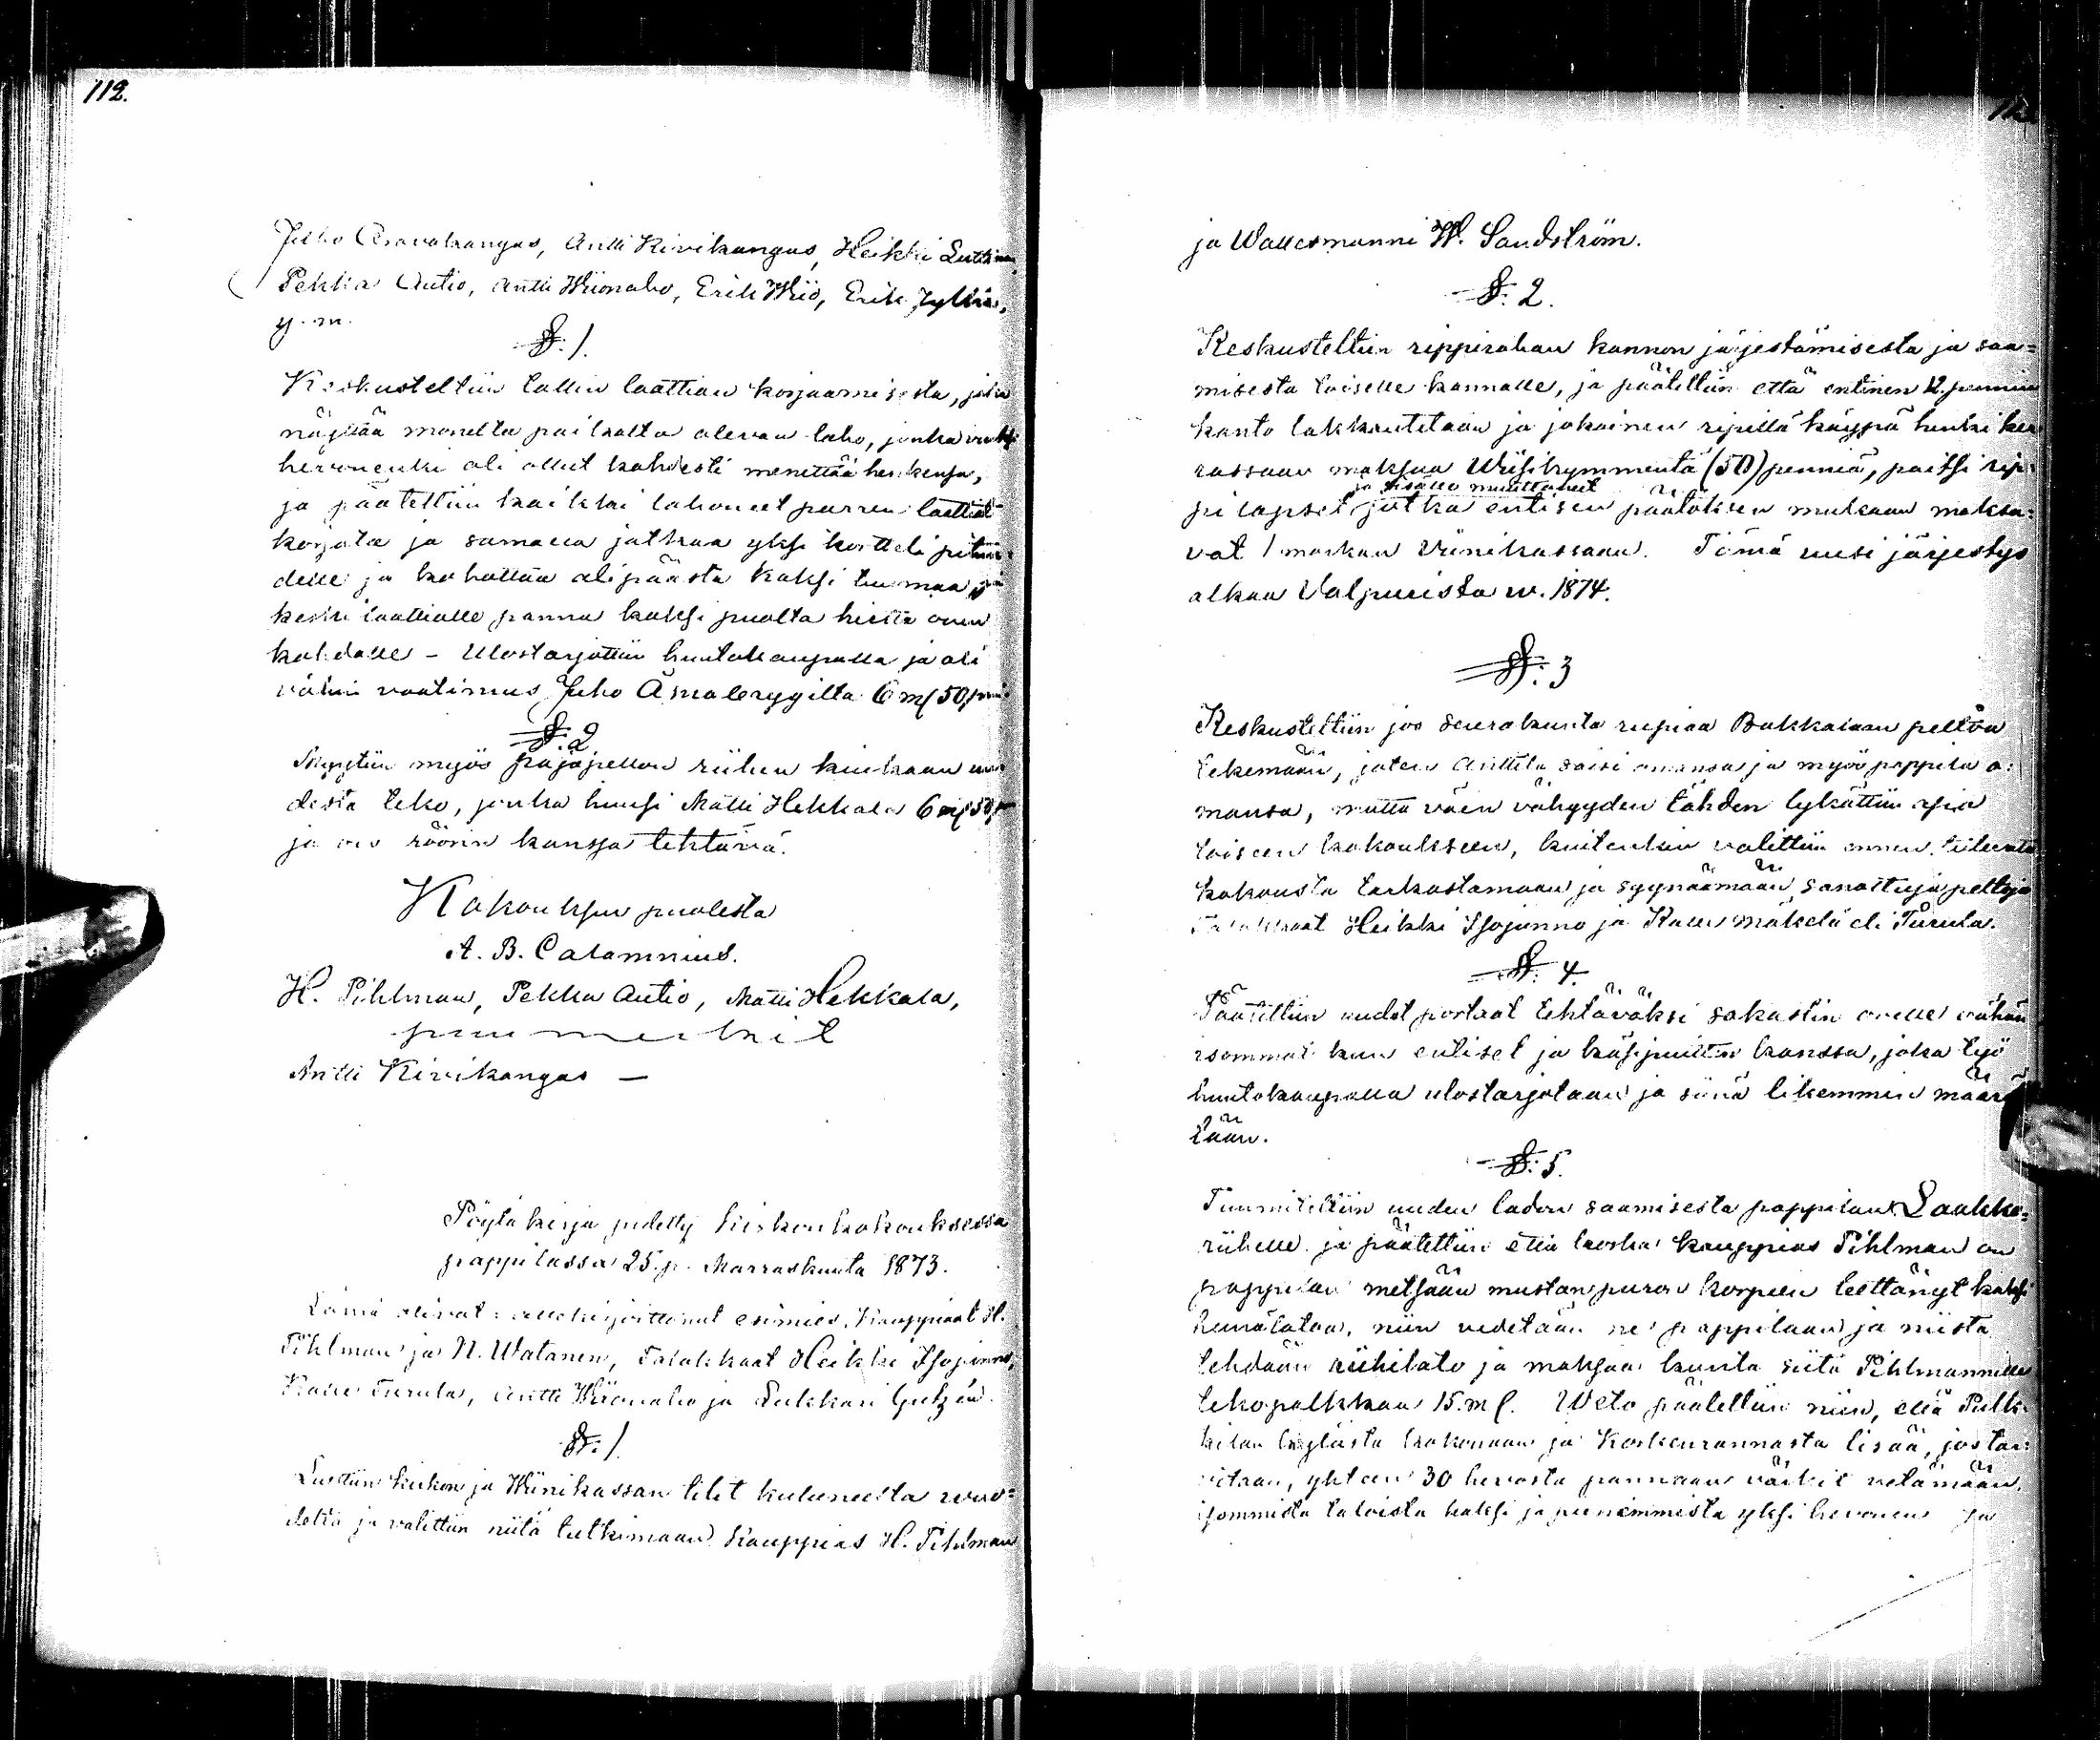 112.
Juho Aravakangas, Antti Kirikangas, Heikki
Pekka Autio, Antti Wiionaho, Erik Wiio, Erik Jylhä,
y. m.
§. 1.
Keskusteltiin tallin laattian korjaamisesta, joka
näyttää monelta paikalta olevan laho, jonka
hevonenki oli ollut kahdesti menettää henkensä,
ja päätettiin kaikki lahoneet parret laattiat
korjata ja samalla jatkaa yksi kortteli
delle ja kohottaa alipäästä kaksi tuumaa ja
keski laattialle panna kaksi puolta hirttä oven
kohdalle – Ulostarjottiin huutokaupalla ja oli
vähin vaatimus Juho Ämmälerygiltä 6 mf 50
§. 2
Myytiin myös pajapellon riihen kiukaan uu-
desta teko, jonka huusi Matti Hekkala 6 mf 50
ja on röörin kanssa tehtävä.
Kokouksen puolesta
A. B. Calamnius.
H. Pihlman, Pekka Autio, Matti Hekkala,
puumerkit
Antti Kirikangas –
Pöytäkirja pidetty Kirkonkokouksessa
pappilassa 25. p. Marraskuuta 1873.
Läsnä olivat: allekirjoittanut esimies, Kauppiaat H.
Pihlman ja N. Watanen, Talokkaat Heikki Isojunno,
Kalle Turula, Antti Wiionaho ja Lukkari
§. 1
Luettiin kirkon ja Wiinikassan tilit kuluneesta wuo=
desta ja valittiin niitä tutkimaan Kauppias H. Pihlman
ja Wallesmanni W. Sandström.
§. 2.
Keskusteltiin rippirahan kannon järjestämisestä ja saa=
misesta toiselle kannalle, ja päätettiin että entinen 12. pennin
kanto lakkautetaan ja jokainen ripillä käypä henki ker
rassaan maksaa Wiisikymmentä (50) penniä, paitsi rip=
ja sisälle muuttaneet
pi lapset jotka entisen päätöksen mukaan maksa=
vat 1 markan viinikassaan. Tämä uusi järjestys
alkaa Valpurista w. 1874.
§. 3
Keskusteltiin jos seurakunta rupiaa Bakkalaan peltoa
tekemään, jaten Anttila saisi omansa ja myös pappila o=
mansa, mutta väen vähyyden tähden lykättiin asia
toiseen kokoukseen, kuitenkin valittiin ennen
kokousta tarkastamaan ja syynäämään sanottuja peltoja
Talokkaat Heikki Isojunno ja Kalle mäkelä eli Turula.
§. 4.
Päätettiin uudet portaat tehtäväksi sakastin ovelle vähän
isommat kuin entiset ja käsipuitten kanssa, joka työ
huutokaupalla ulostarjotaan ja siinä likemmin määrä
tään.
§. 5.
Tuumiteltiin uuden ladon saamisesta pappilan Laakko=
riihelle ja päätettiin että koska kauppias Pihlman on
pappilan metsään mustanpuron korpeen teettänyt kaksi
heinälatoa, niin vedetään ne pappilaan ja niistä
tehdään riihilato ja maksaa kunta siitä Pihlmannille
tekopalkkaa 15. mf. Weto päätettiin niin, että Pulk=
kilan kylästä kokonaan ja Koskenrannasta lisää, jos tar=
vitaan, yhteen 30 hevosta pannaan väkit vetämään,
isommista taloista kaksi ja pienemmistä yksi hevonen ja